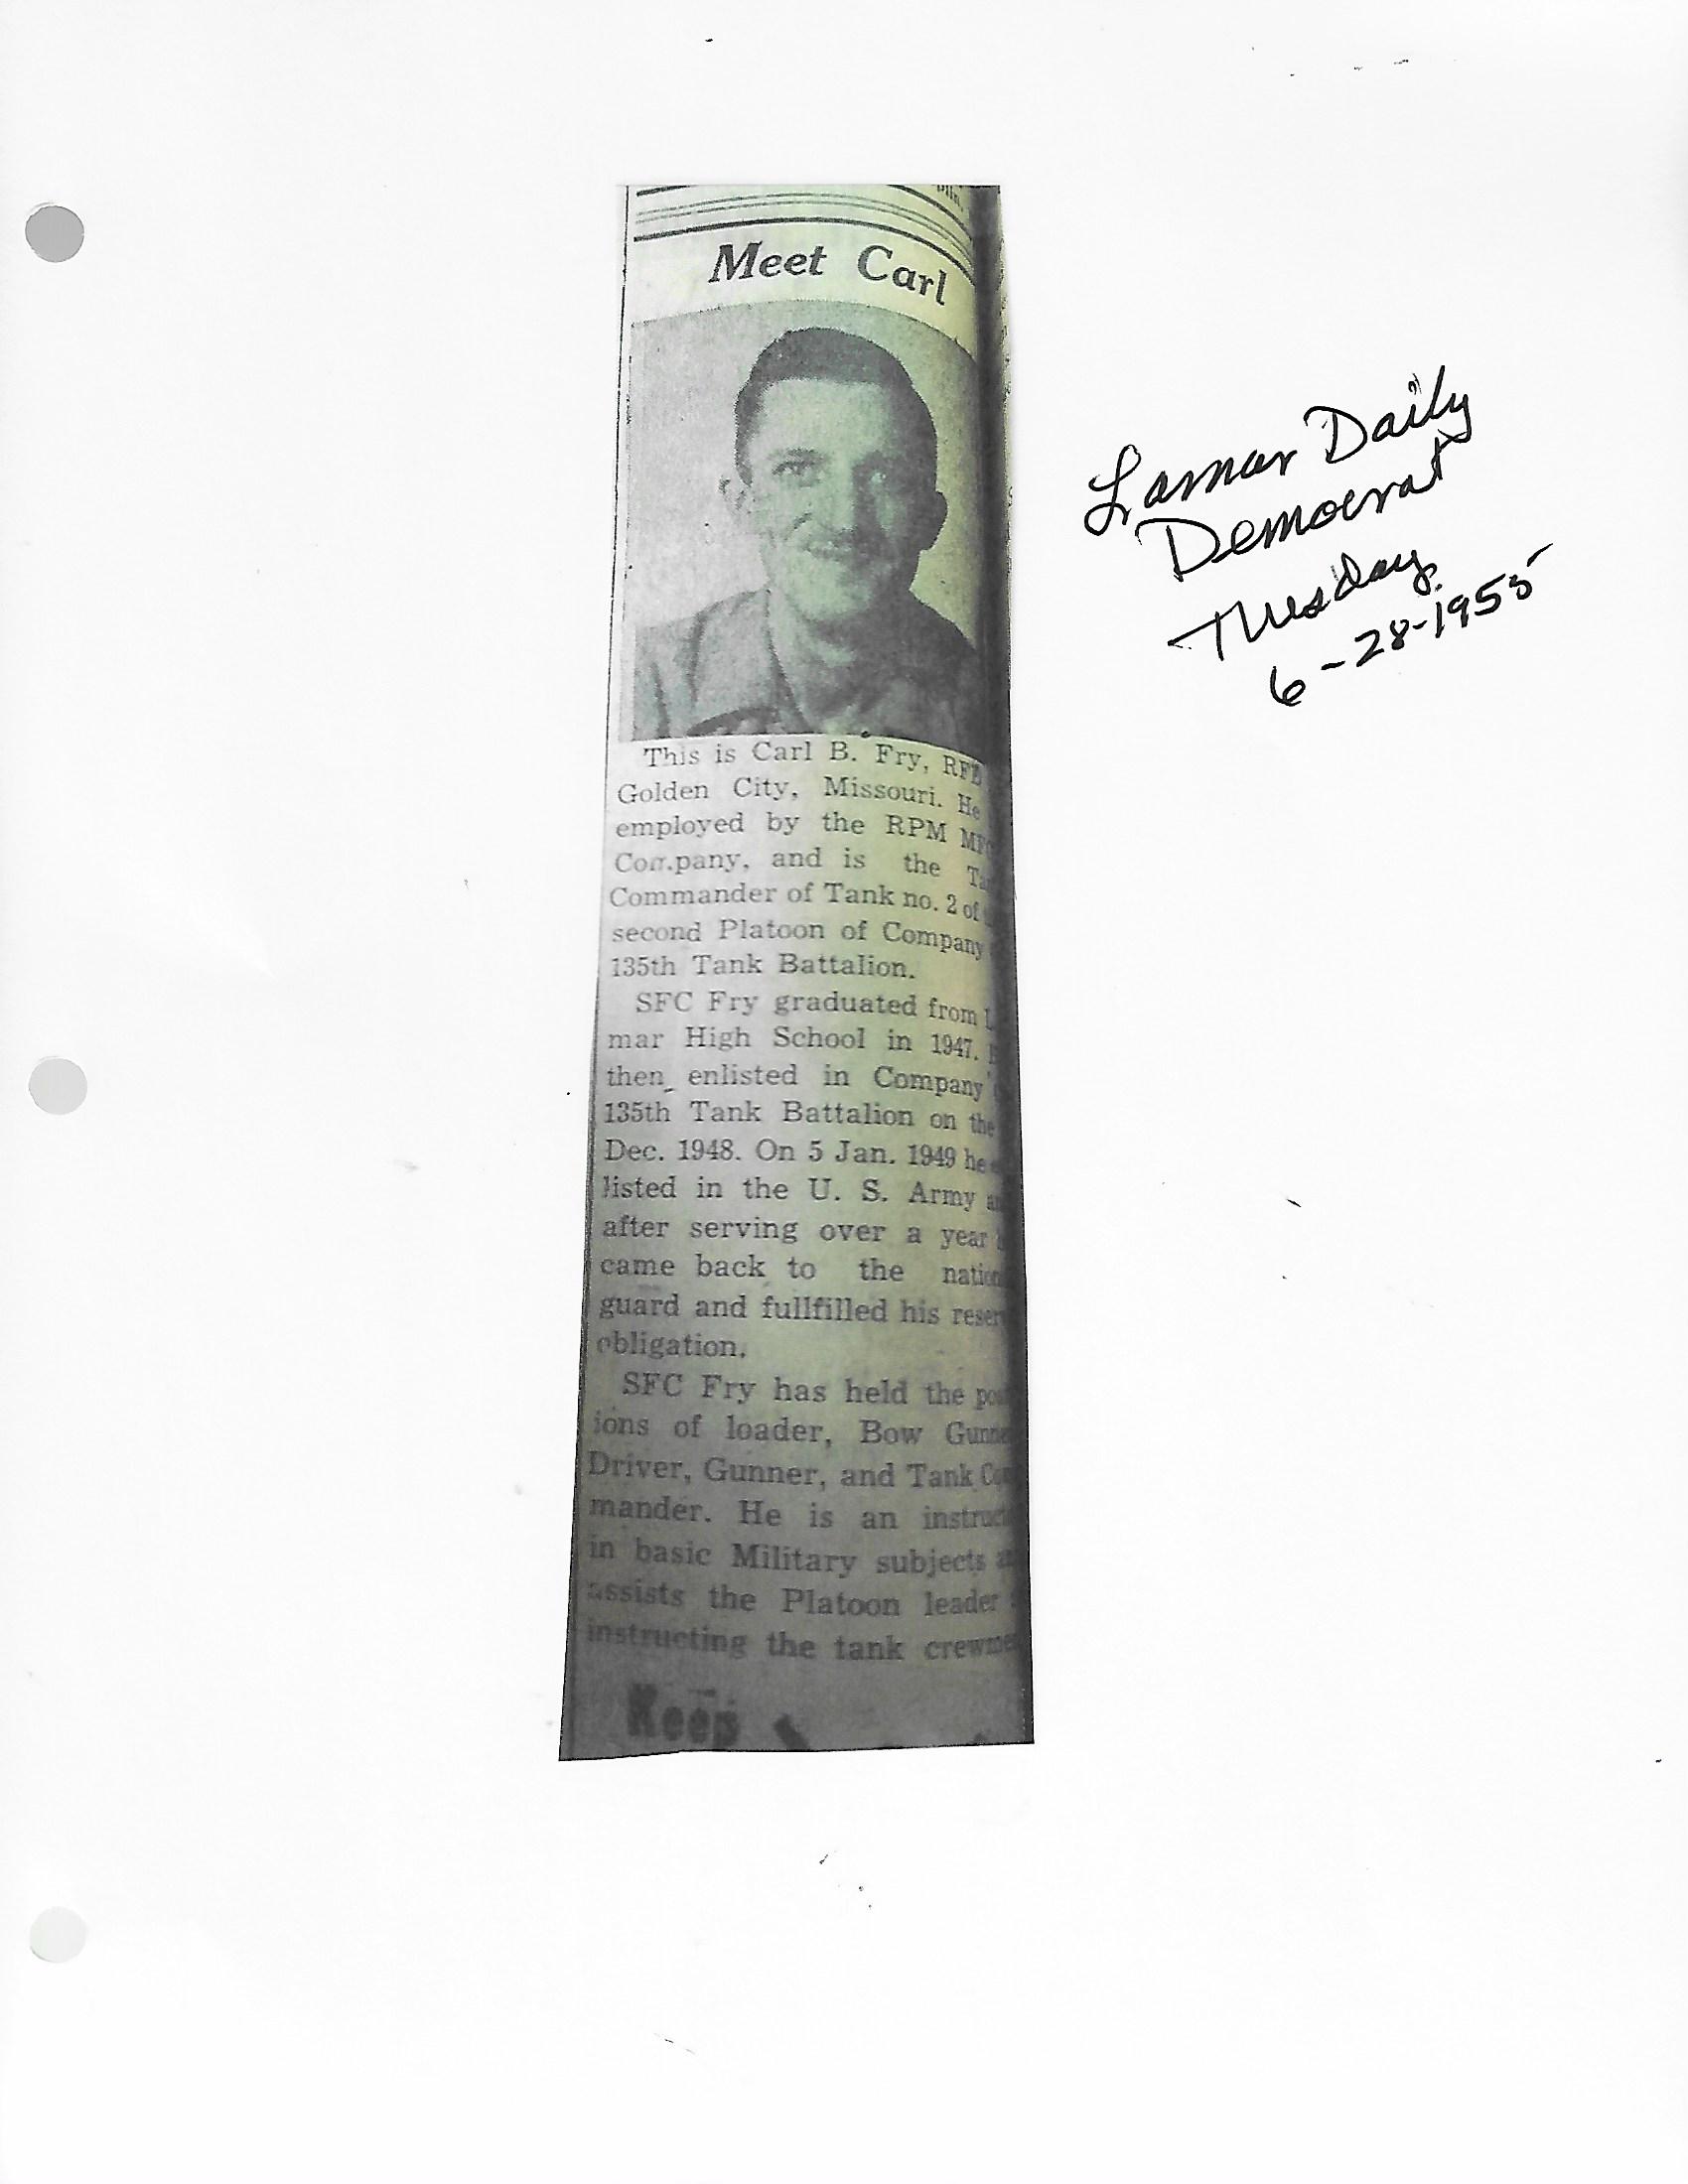 Meet Carl
This is Carl B. Fry,
Golden City, Missouri. He
employed by the RPM
Company, and is the
Commander of Tank no. 2 of
second Platoon of Company
135th Tank Battalion.
SFC Fry graduated from
mar High School in 1947.
then enlisted in Company
135th Tank Battalion on the
Dec. 1948. On 5 Jan. 1949 he
listed in the U. S. Army
after serving over a year
came back to the
guard and fullfilled his
obligation.
SFC Fry has held the
ions of loader, Bow
Driver, Gunner, and Tank
mander. He is an
in basic Military subjects
assists the Platoon leader
instructing the tank
Keep
Lamar Daily
Democrat
Tuesday
6-28-1955